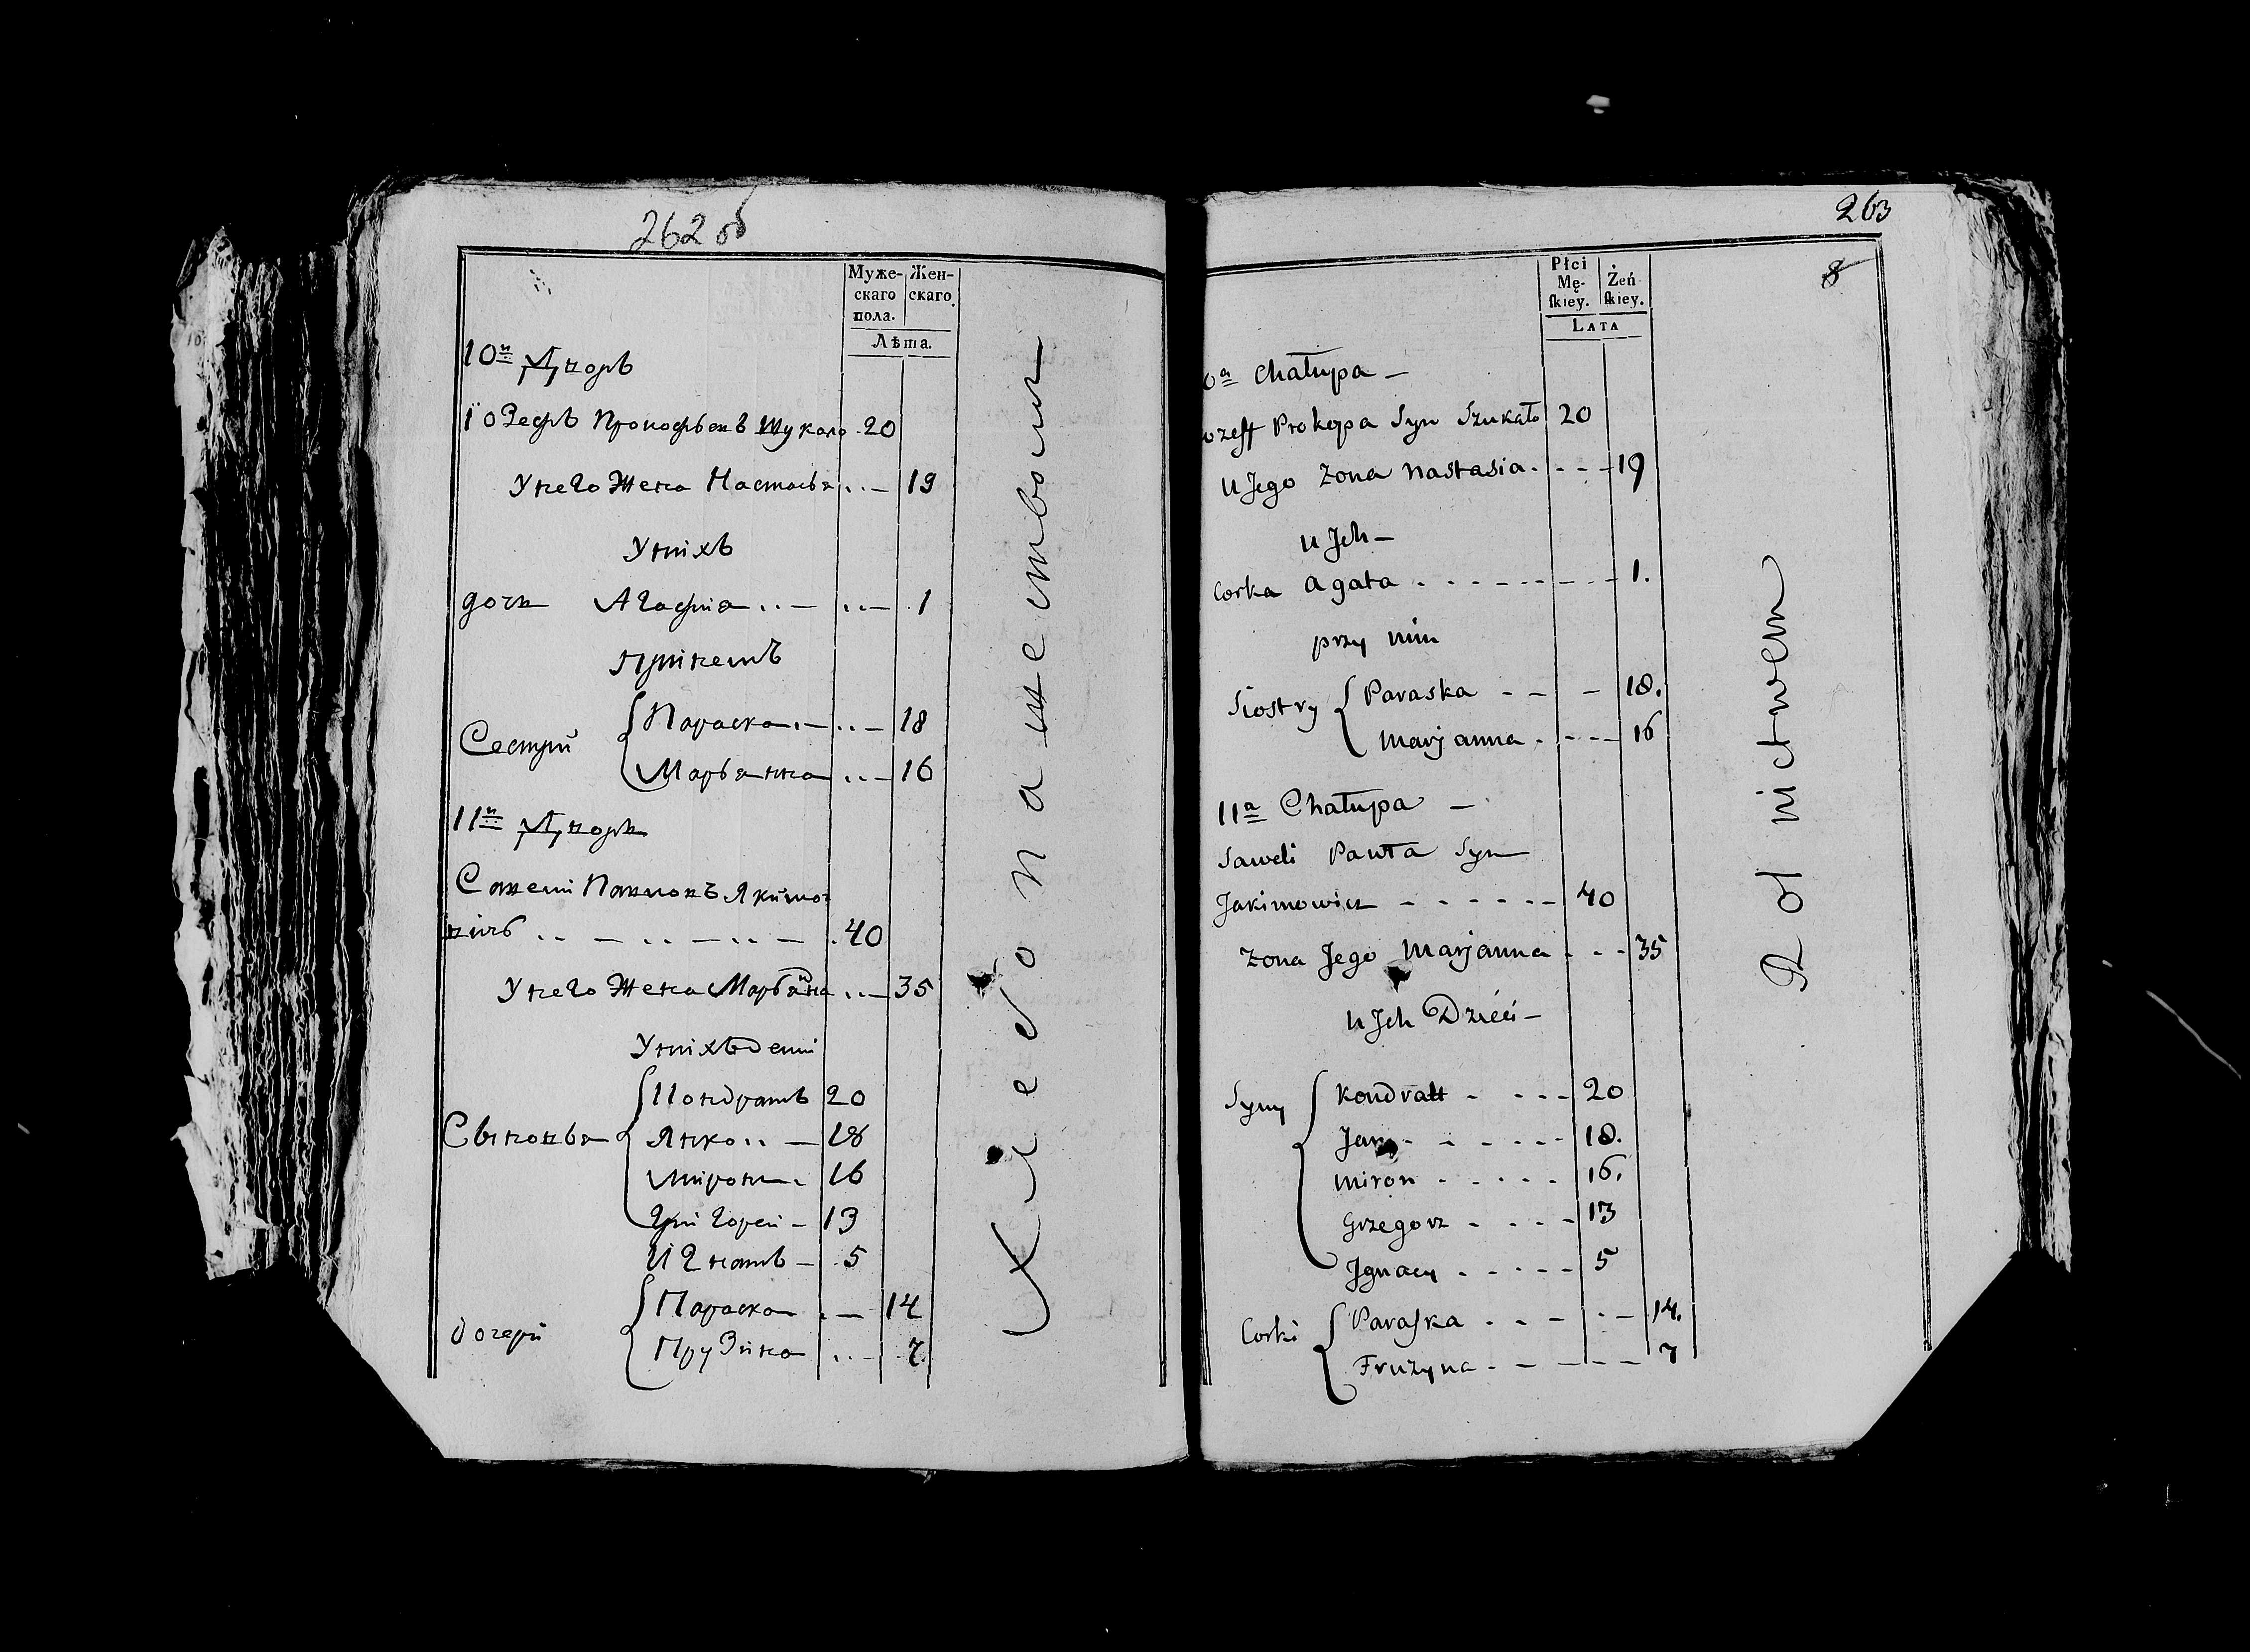 262 об
Муже-
скаго
пола.
Жен-
скаго.
Лѣта.
10й Дворъ
Іозефъ Прокофьевъ Шукало 20
У него Жена Настасья 19
У нихъ
дочь Агафия 1
При немъ
Сестри
Параска 18
Марьянна 16
11й Дворъ
Савели Павловъ Якимо-
вичъ 40
У него Жена Марьянна 35
У нихъ дети
Сыновья
Кондратъ 20
Янко 18
Миронъ 16
Григорей 13
Игнатъ 5
дочери
Параска 14
Прузина 7
Хлебопашеством
263
8
Płci
Mę-
ſkiey.
Żeń
ſkiey.
LATA
0a Chałupa
ozeff Prokopa Syn Szukało 20
u Jego Zona Nastasia 19
u Jch
Corka Agata 1.
przy nim
Siostry
Paraska 18.
Marjanna 16
11a Chałupa
Saweli Pawła Syn
Jakimowicz 40
Zona Jego Marjanna 35
u Jch Dzieci
Syny
Kondratt 20
Jan 18.
Miron 16.
Grzegorz 13
Jgnacy 5
Corki
Paraſka 14.
Fruzyna 7
Rolnictwem